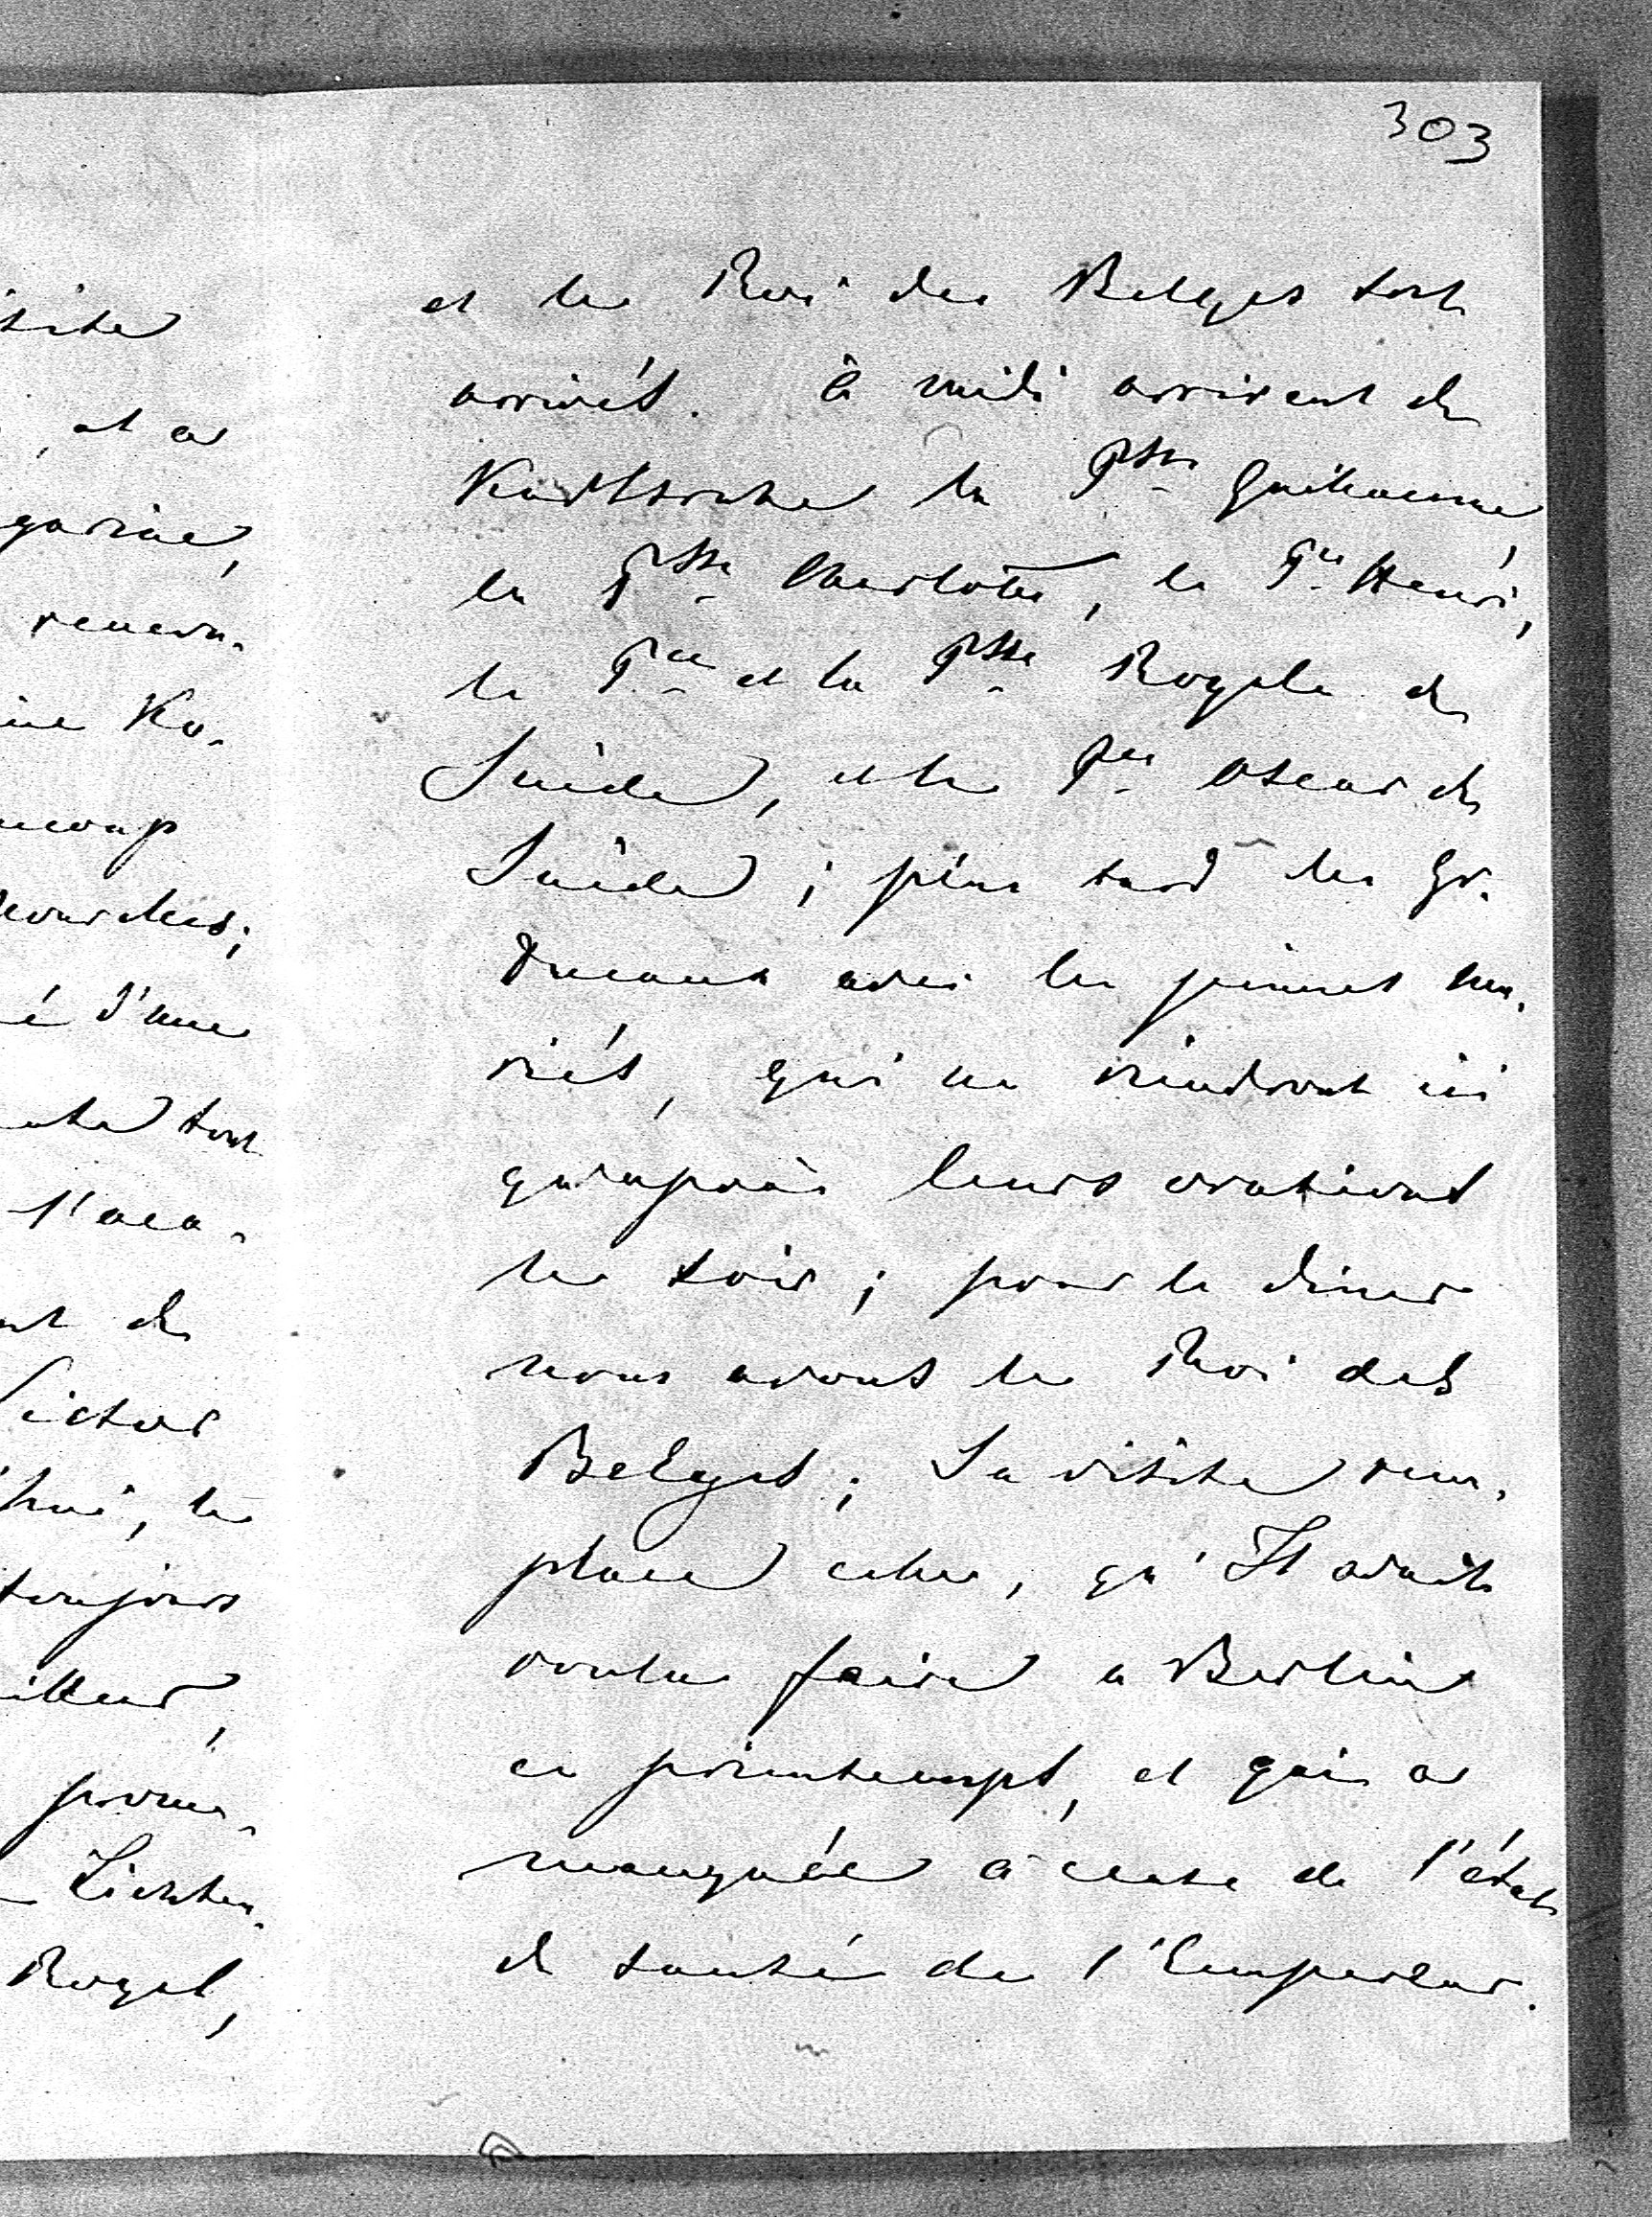 303
et le Roi des Belges sont
arrivés. à midi arrivent de
Karlsruhe la Psse Guillaume,
la Psse Charlotte, le Pce Henri,
le Pce et la Psse Royale de
Suède, et le Pce Oscar de
Suède; plus tard les Gr.
Ducaux avec les jeunes ma-
riés, qui ne viendront ici
qu'après leurs ovations
le soir; pour le diner
nous avons le Roi des
Belges; Sa visite rem-
place celle, qu'Il avait
voulu faire a Berlin
ce printemps, et qui a
manquée à cause de l'état
de santé de l'Empereur.
visite
, et a
rencon-
Ko-
d'une
sont
l'aca-
de
Victor
, le
toujours
Lichten-
Royal,